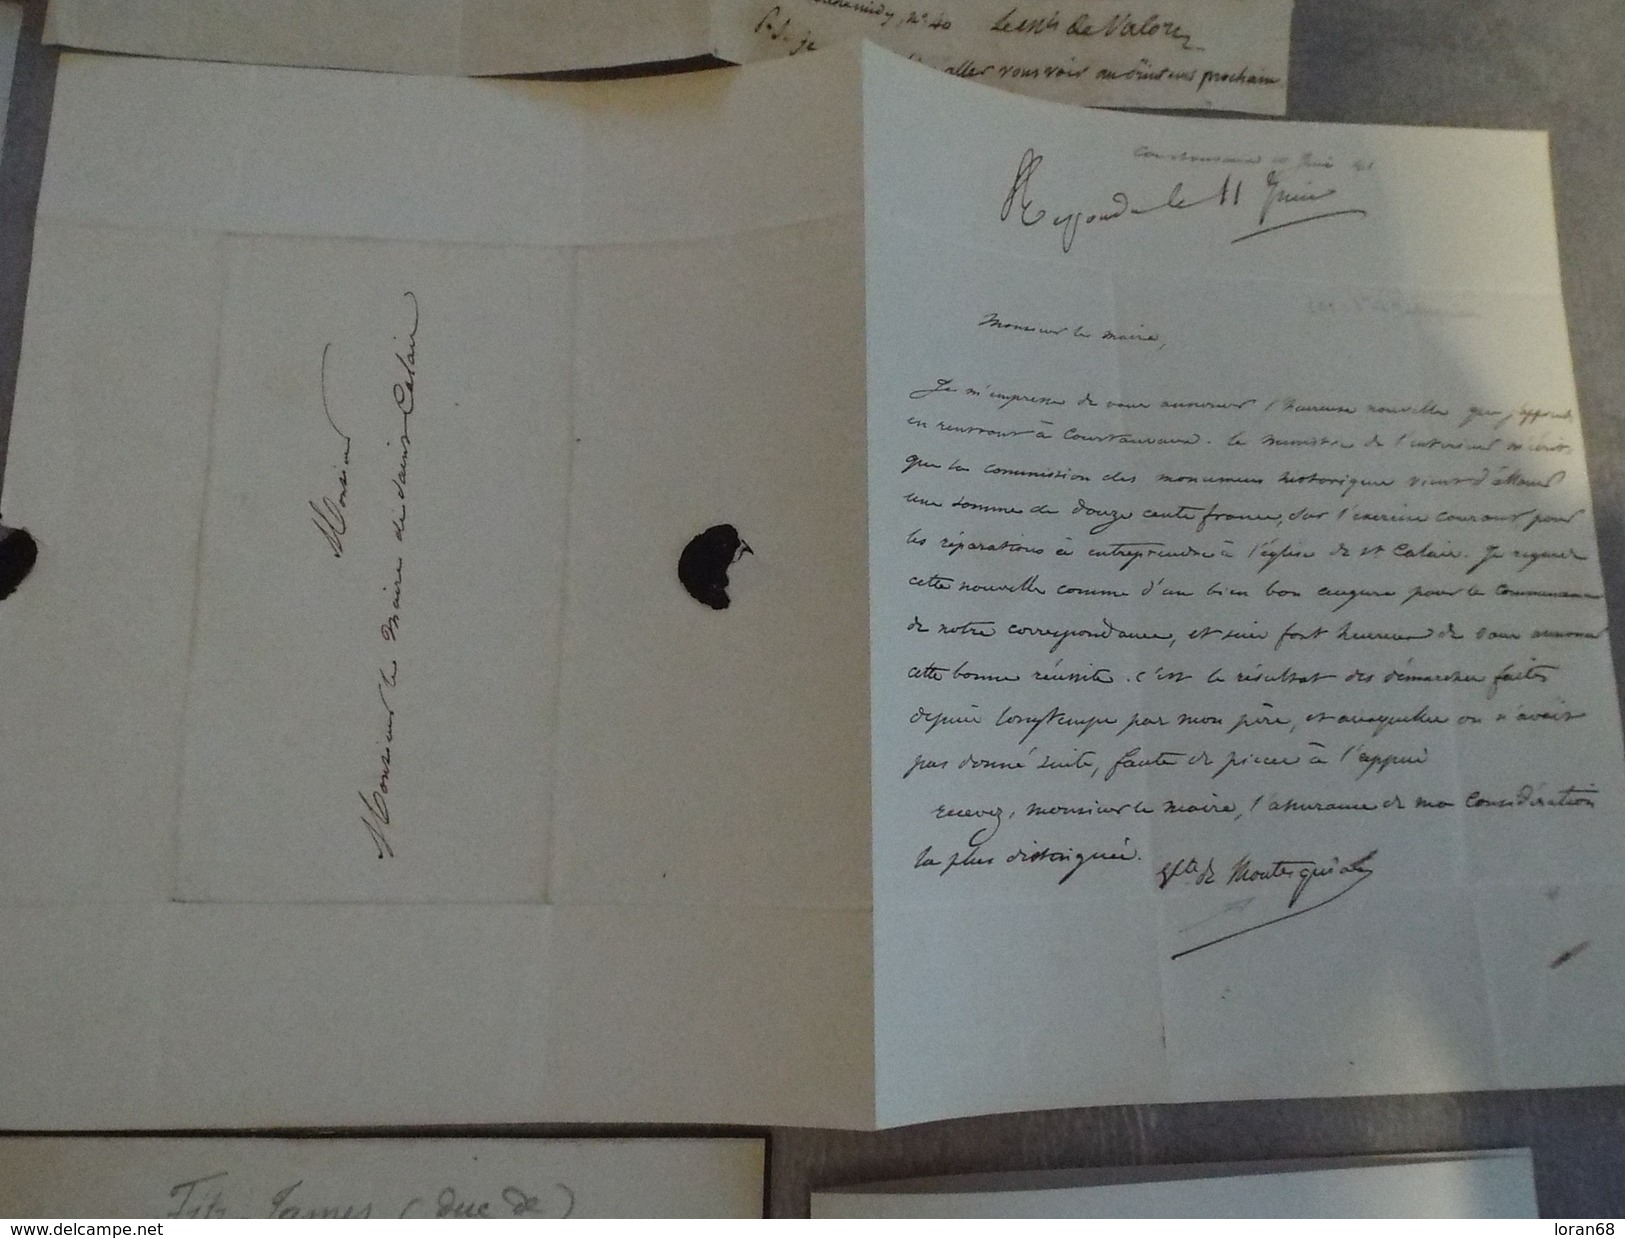 n° 40 de Valory
P.S. je
aller vous voir au prochain
Courtanvaux 10 Juin
Repondu le 11 Juin
Monsieur le maire,
Je m'empresse de vous annoncer l'heureuse nouvelle que j'apprends
en rentrant à Courtanvaux. Le Ministre de l'intérieur m'écrit
que la commission des monumens historiques vient d'allouer
une somme de douze cents francs, sur l'exercice courant pour
les réparations à entreprendre à l'église de St Calais. Je regarde
cette nouvelle comme d'un bien bon augure pour le commencement
de notre correspondance, et suis fort heureux de vous annoncer
cette bonne réussite. c'est le résultat des démarches faites
depuis longtemps par mon père, et auxquelles on n'avait
pas donné suite, faute de pièces à l'appui
recevez, monsieur le maire, l'assurance de ma considération
la plus distinguée.
de Montesquiou
Monsieur
Monsieur le Maire de saint Calais
Fitz-James (duc de)
https://www.delcampe.net
loran68